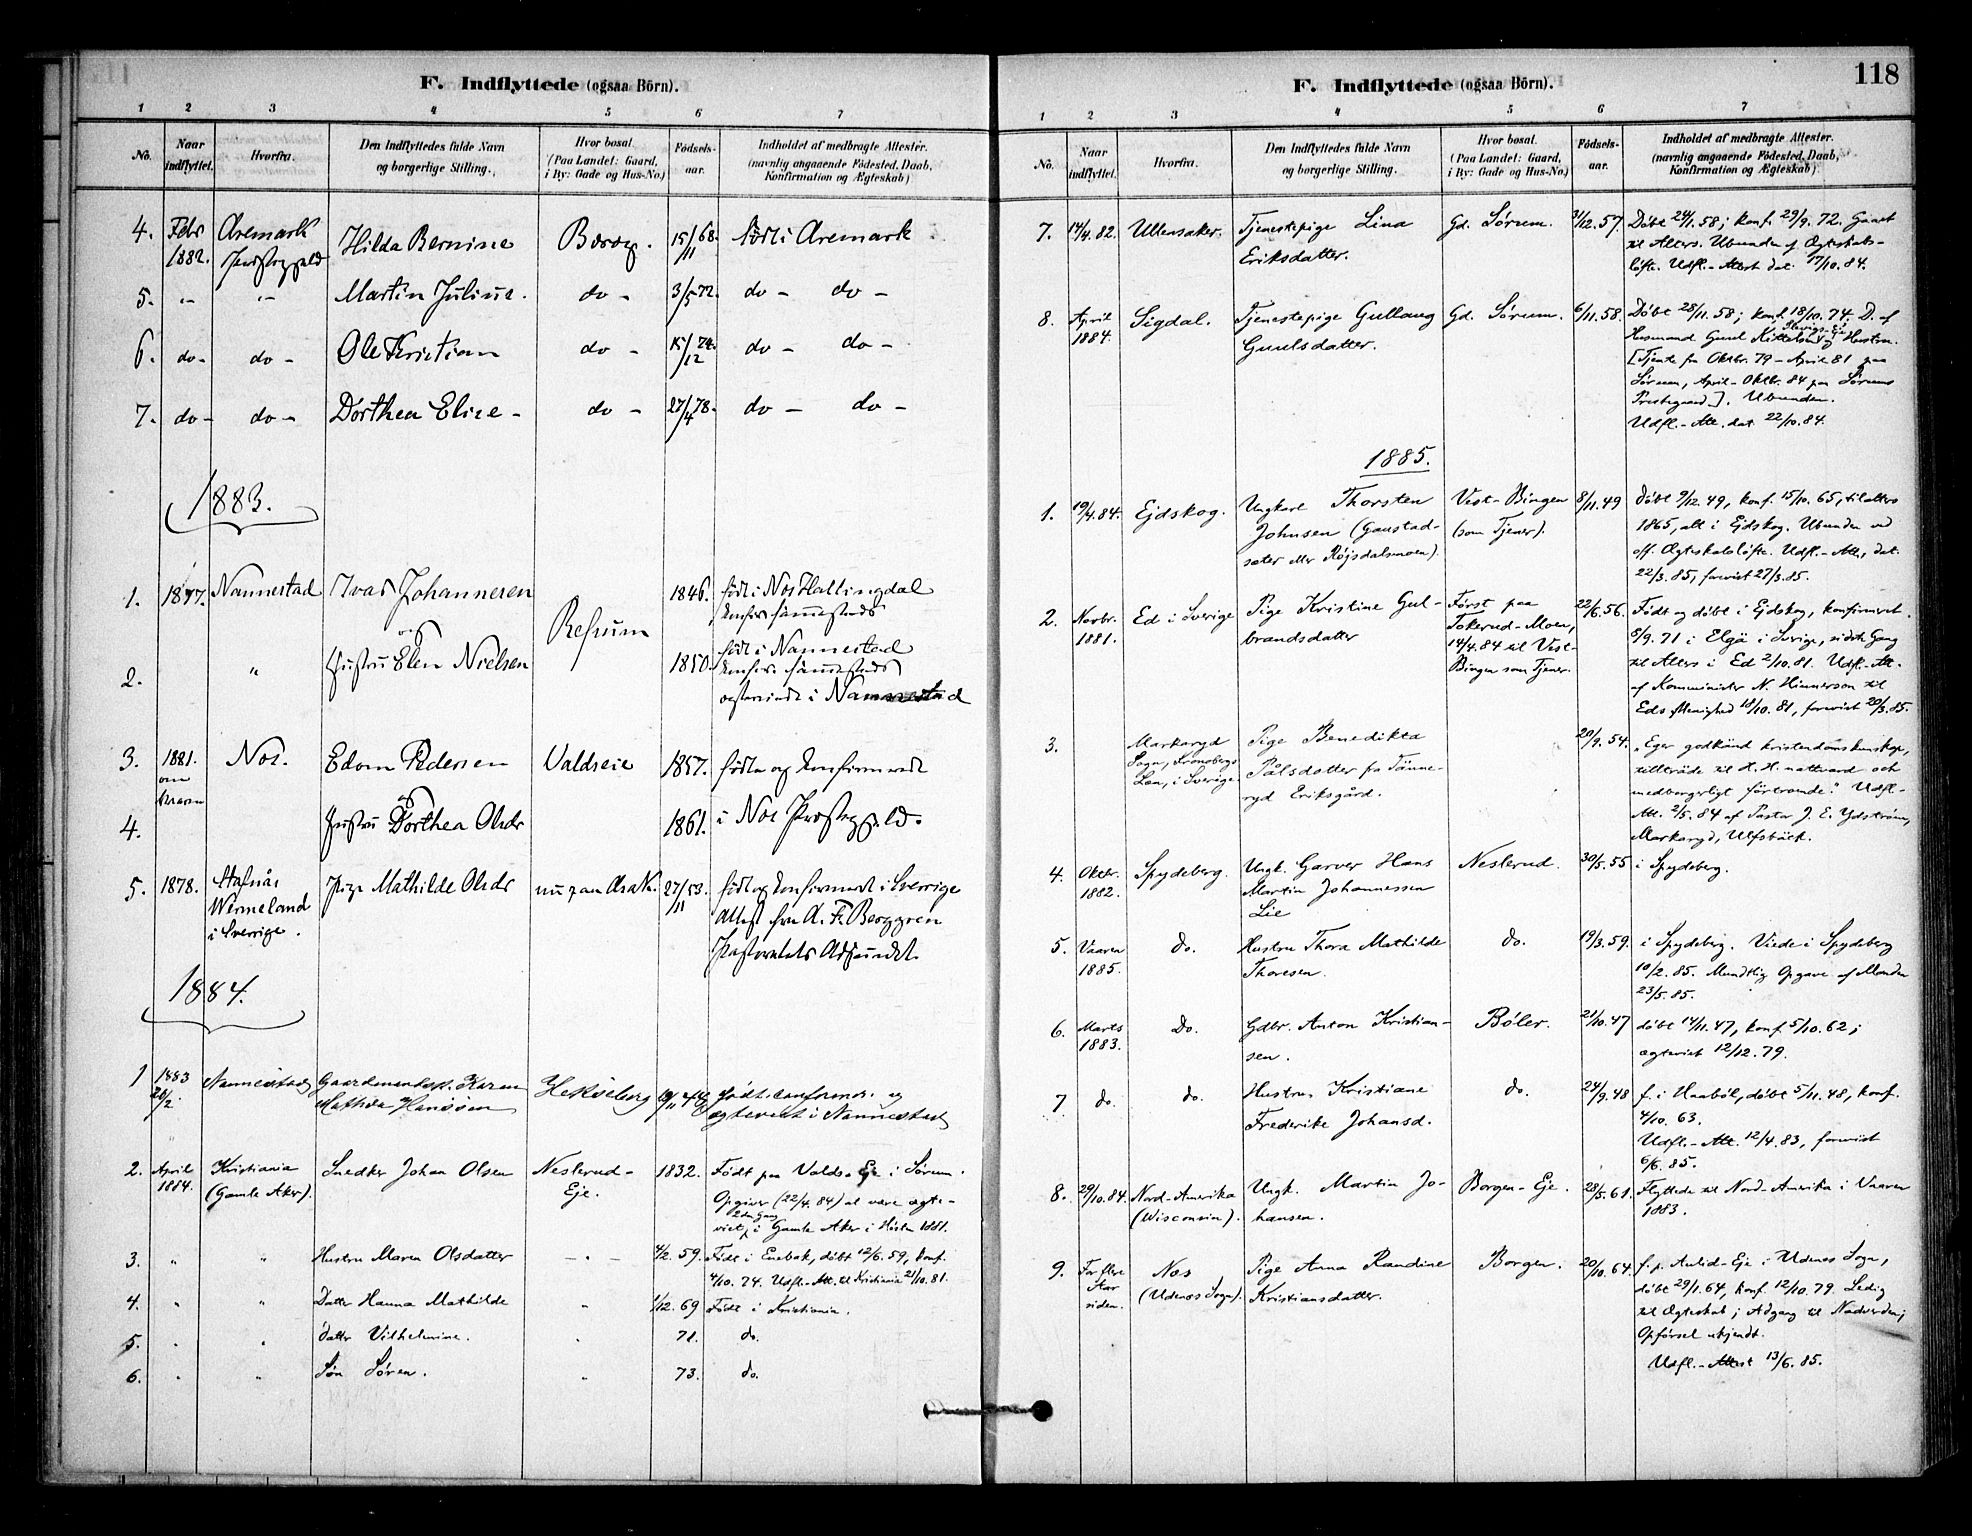 F. Indflyttede (ogsaa Börn).
1 2 3 4 5 6 7
No. Naar indflyttet. Hvorfra. Den Indflyttedes fulde Navn og borgerlige Stilling. Hvor bosat. (Paa Landet: Gaard, i By: Gade og Hus-No.) Födsels-aar. Indholdet af medbragte Attester. (navnlig angaaende Födested, Daab, Konfirmation og Ægteskab)
4. Febr 1882. Aremark Hilda Bernine 15/11 68. födt i Aremark
5. " " Martin Julius. do 3/5 72. do do
6. do do Ole Kristian do 15/12 do do
7. do do Dorthea Elise do 27/4 78. do do
1883.
1. 1877. Nannestad Ivar Johannesen Refsum 1846. födt i Nes Hallingdal
og
2. " Hustru Elen Nielsen 1850. födt i Nannestad
Nannestad
3. 1881. Nes. Edom Pedersen Valdseie 1857. födte og konfirmerede
og
4. Hustru Dorthea Olsdr 1861. i Nes
5. 1878. Wermeland i Sverrige. Pige Mathilde Olsdr 27/11 53. födt og konfirmeret i Sverrige
Attest fra A. F. Berggren
1884.
1 1883 Nannestad Gaardmandsk. Karen Mathea Hanssen Hekseberg födt, conformer. og
ægteviet i Nannestad
2. April 1884. Kristiania (Gamle Aker). Snedker Johan Olsen Neslerud-Eje. 1832. Födt paa Valds-Eje i Sörum.
Opgiver (22/4. 84) at være ægte-
2den Gang
viet, i Gamle Aker i Hösten 1881.
3. " " Hustru Maren Olsdatter - " - 4/2. 59. Födt i Enebak, döbt 12/6. 59, konf.
4/10. 74. Udfl.-Att. til Kristiania 21/10. 81.
4. " " Datter Hanna Mathilde " 1/12. 69 Födt i Kristiania.
5. " " Datter Vilhelmine. " 71. do.
6. " " Sön Sören. " 73. do.
118
F. Indflyttede (ogsaa Börn).
1 2 3 4 5 6 7
No. Naar indflyttet. Hvorfra. Den Indflyttedes fulde Navn og borgerlige Stilling. Hvor bosat. (Paa Landet: Gaard, i By: Gade og Hus-No.) Födsels-aar. Indholdet af medbragte Attester. (navnlig angaaende Födested, Daab, Konfirmation og Ægteskab)
7. 14/4. 82. Ullensaker. Tjenestepige Lina Eriksdatter. Gd. Sörum. 31/12. 57. Döbt 24/1. 58; konf. 29/9. 72. Gaaet
til Alters. Ubunden af Ægteskabs-
löfte. Udfl.-Attest dat. 17/10. 84.
8. April 1884. Sigdal. Tjenestepige Gullaug Guulsdatter. Gd. Sörum. 6/11. 58. Döbt 28/11. 58; konf. 18/10. 74. D. af
Husmand Guul Kittelsen og Hustru.
[Tjente fra Oktbr. 79 - April 81 paa
Sörum, April - Oktbr. 84 paa Sörums
Prestegaard]. Ubunden.
Udfl.-Att. dat. 22/10. 84.
1885.
1. 19/4. 84. Ejdskog. Ungkarl Thorsten Johnsen (Gaustad-sæter eller Röjsdalsmoen). Vest-Bingen (som Tjener). 8/11. 49 Döbt 9/12. 49, konf. 15/10. 65, til alters
1865, alt i Ejdskog. Ubunden ved
off. Ægteskabslöfte. Udfl.-Att. dat.
22/3. 85, forevist 27/3. 85.
2. Novbr. 1881. Ed i Sverige Pige Kristine Gul-brandsdatter Först paa Tokerud-Moen, 14/4. 84 til Vest-Bingen som Tjener. 22/6. 56. Födt og döbt i Ejdskog, konfirmeret
8/9. 71 i Elgå i Sverige, sidste Gang
til Alters i Ed 2/10. 81. Udfl.-Att.
af Komminister N. Hinnerson til
Eds Menighed 18/10. 81, forevist 20/3. 85.
3. Markaryd Sogn, Kronobergs Län, i Sverige Pige Benedikta Pålsdatter fra Tänne-ryd Eriksgård. 20/9. 54. "Eger godkänd kristendomskunskap,
tillträde til H. H. nattvard och
medborgerligt förtroende." Udfl.-
Att. 2/5. 84 af Pastor J. E. Ydström,
Markaryd, Ulfsbäck.
4. Oktbr. 1882. Spydeberg. Ungk. Garver Hans Martin Johannessen Lie Neslerud. 30/5. 55 i Spydeberg.
5. Vaaren 1885. do. Hustru Thora Mathilde Thoresen. do. 19/3. 59. i Spydeberg. Viede i Spydeberg
10/2. 85. Mundtlig Opgave af Manden
23/5. 85.
6. Marts 1883. Do. Gdbr. Anton Kristian-sen. Böler. 21/10. 47 döbt 14/11. 47, konf. 5/10. 62;
ægteviet 12/12. 79.
7 do. do. Hustru Kristiane Frederike Johansd. do. 24/9. 48 f. i Haaböl, döbt 5/11. 48, konf.
4/10. 63.
Udfl.-Att. 12/4. 83, forevist
6/6. 85.
8. 29/10. 84. Nord-Amerika (Wisconsin). Ungk. Martin Jo-hansen. Borgen-Eje. 28/5. 61. Flyttede til Nord-Amerika i Vaaren
1883.
9. For flere Aar siden. Nes (Udenes Sogn). Pige Anna Randine Kristiansdatter. Borgen. 20/10. 64. f. p. Aulid-Eje i Udenes Sogn,
döbt 29/1. 64, konf. 12/10. 79. Ledig
til Ægteskab; Adgang til Nadverden;
Opförsel ukjendt.
Udfl.-Attest 13/6. 85.